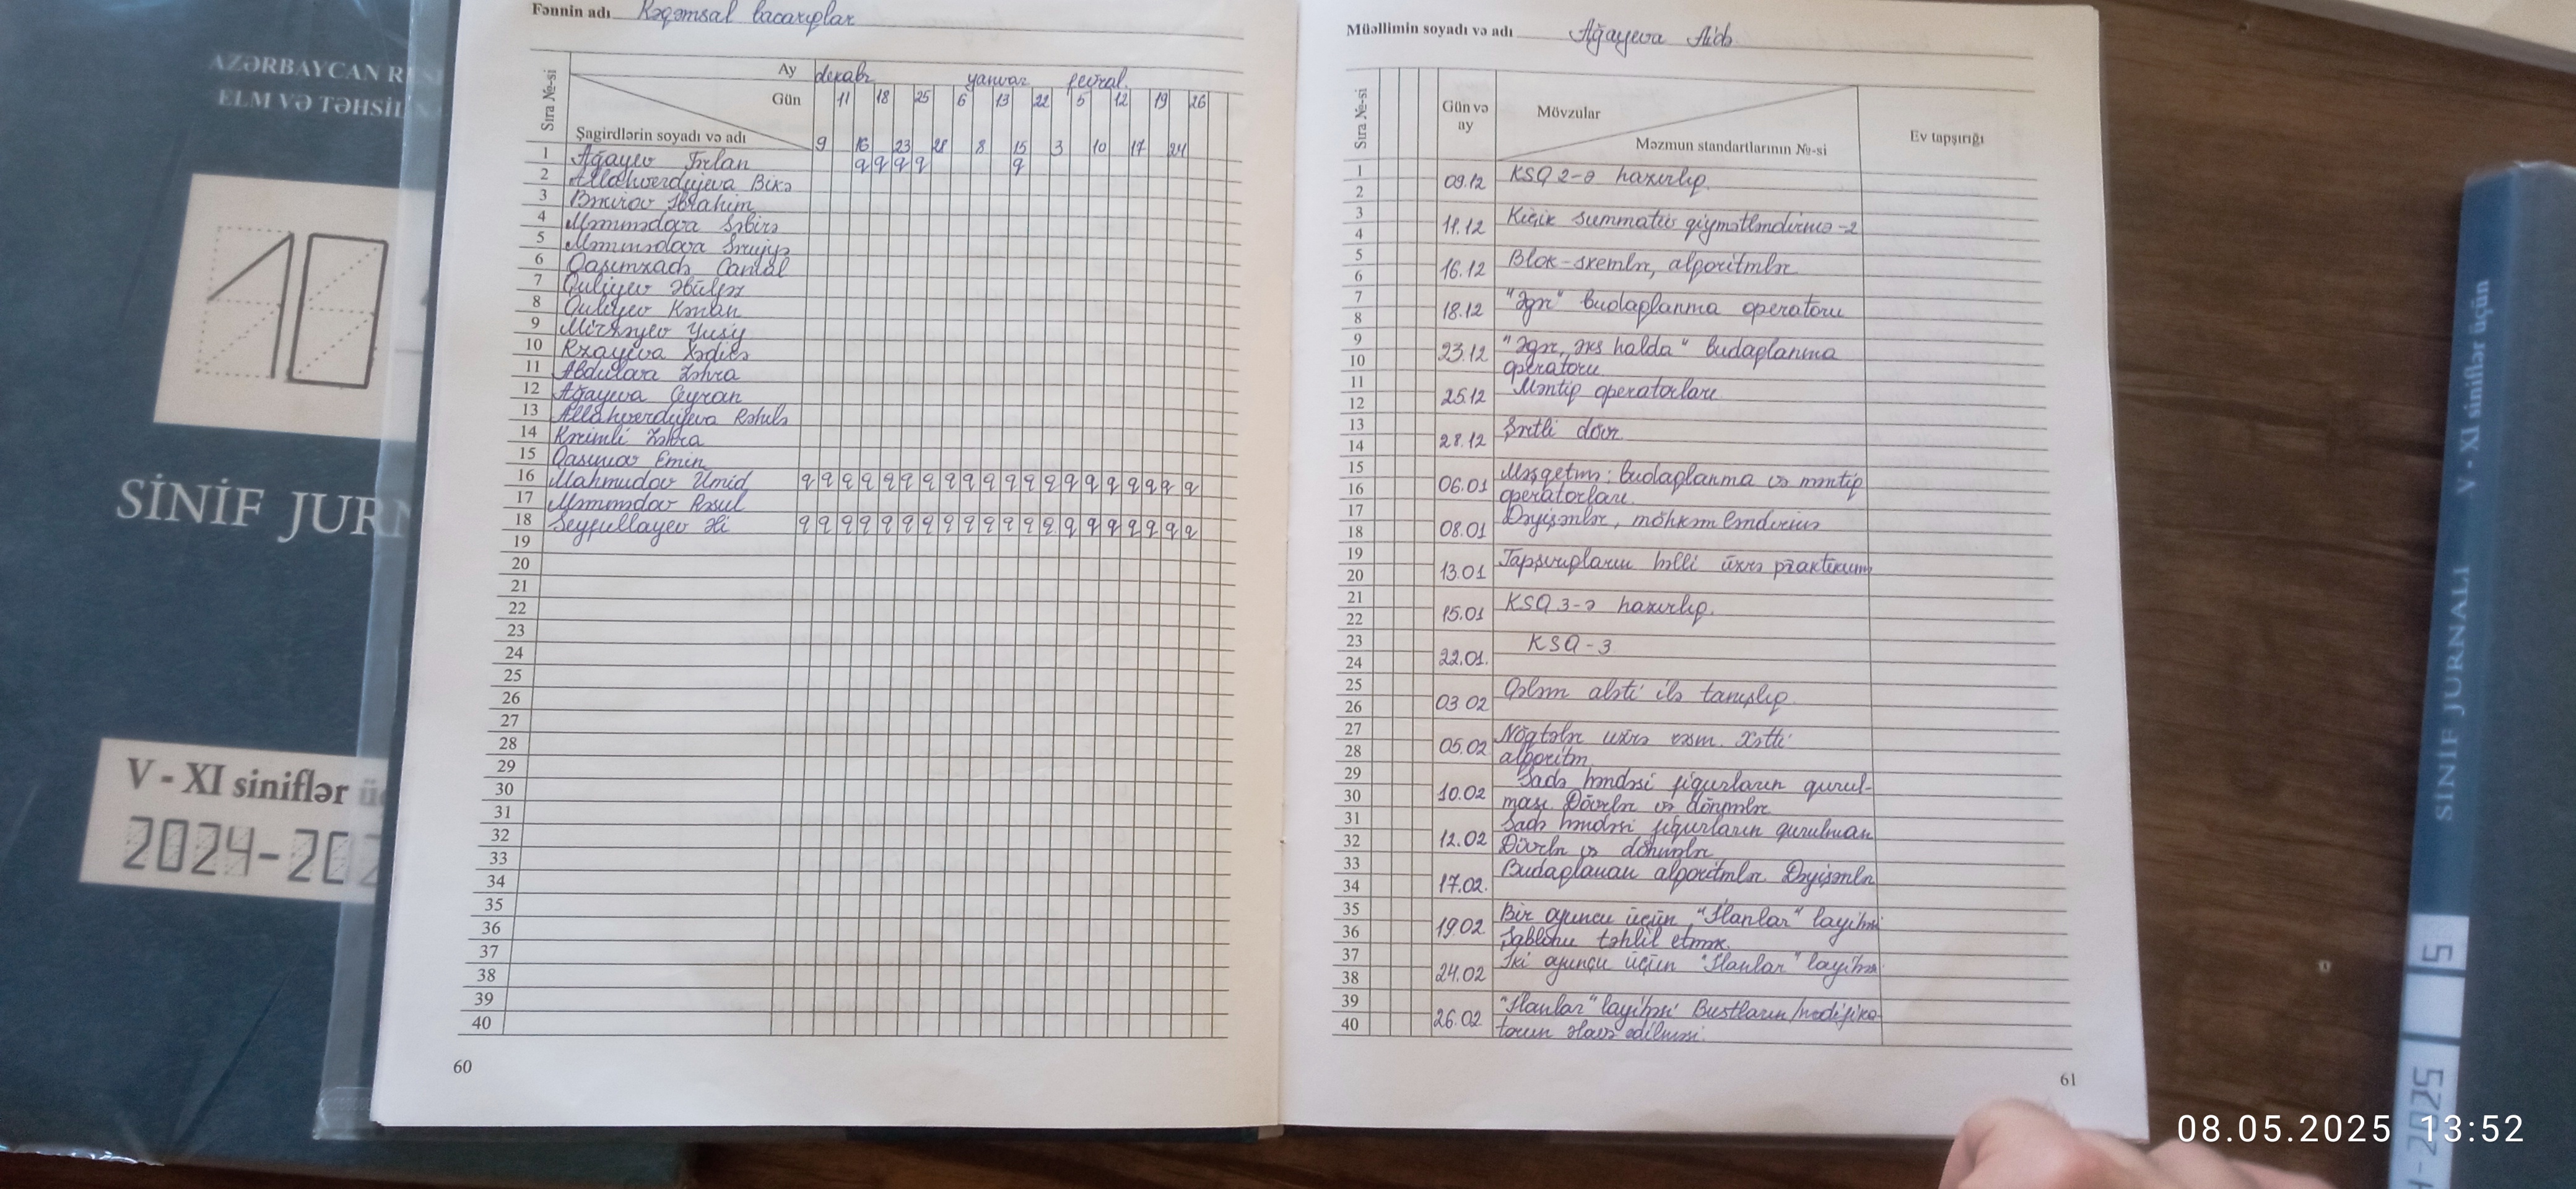 AZƏRBAYCAN RES
ELM VƏ TƏHSİL
10
SİNİF JURN
V - XI siniflər ü
2024-202
Fənnin adı Rəqəmsal bacarıqlar
Sıra №-si
Ay dekabr yanvar fevral.
Gün 11 18 25 6 13 22 5 12 19 26
Şagirdlərin soyadı və adı 9 16 23 28 8 15 3 10 17 24
1 Ağayev q q q q q
2 Allahverdiyeva
3 Əmirov İbrahim
4 Məmmədova Səbirə
5 Məmmədova
6 Qasımzadə
7 Quliyev Əbülfəz
8 Quliyev Kənan
9 Mirzəyev Yusif
10 Rzayeva Xədicə
11 Abdulova Zəhra
12 Ağayeva Ceyran
13 Allahverdiyeva Rəhilə
14 Kərimli Zəhra
15 Qasımov Emin
16 Mahmudov Ümid q q q q q q q q q q q q q q q q q q q q
17 Məmmədov Rəsul
18 Seyfullayev Əli q q q q q q q q q q q q q q q q q q q q
19
20
21
22
23
24
25
26
27
28
29
30
31
32
33
34
35
36
37
38
39
40
60
Müəllimin soyadı və adı Ağayeva Aidə
Sıra №-si
Gün və ay
Mövzular
Məzmun standartlarının №-si
Ev tapşırığı
1
2 09.12 KSQ 2-ə hazırlıq.
3
4 11.12 Kiçik summativ qiymətləndirmə-2
5
6 16.12 Blok-sxemlər, alqoritmlər
7
8 18.12 "Əgər" budaqlanma operatoru
9
10 23.12 "Əgər, əks halda" budaqlanma
operatoru
11
12 25.12 Məntiq operatorları
13
14 28.12 Şərtli dövr
15
16 06.01 Məşğətmə: budaqlanma və məntiq
operatorları.
17
18 08.01 Dəyişənlər, möhkəmləndirmə
19
20 13.01 Tapşırıqların həlli üzrə praktikum
21
22 15.01 KSQ 3-ə hazırlıq.
23
24 22.01. KSQ-3
25
26 03 02 Qələm aləti ilə tanışlıq.
27
28 05.02 Nöqtələr üzrə rəsm. Xətti
alqoritm
29
30 10.02 Sadə həndəsi fiqurların qurul-
ması. Dövrlər və dönmələr
31
32 12.02 Sadə həndəsi fiqurların qurulması
Dövrlər və dönmələr
33
34 17.02. Budaqlanan alqoritmlər. Dəyişənlər
35
36 19.02 Bir oyunçu üçün "İlanlar" layihəsi
Şablonu təhlil etmək.
37
38 24.02 İki oyunçu üçün "İlanlar" layihəsi
39
40 26.02 "İlanlar" layihəsi Bustların/modifika-
torun əlavə edilməsi.
61
SİNİF JURNALI V - XI siniflər üçün
5
-2025
08.05.2025 13:52